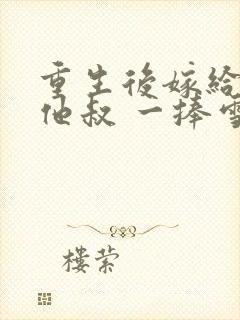 重生後嫁給
他叔 一捧雪
樓縈